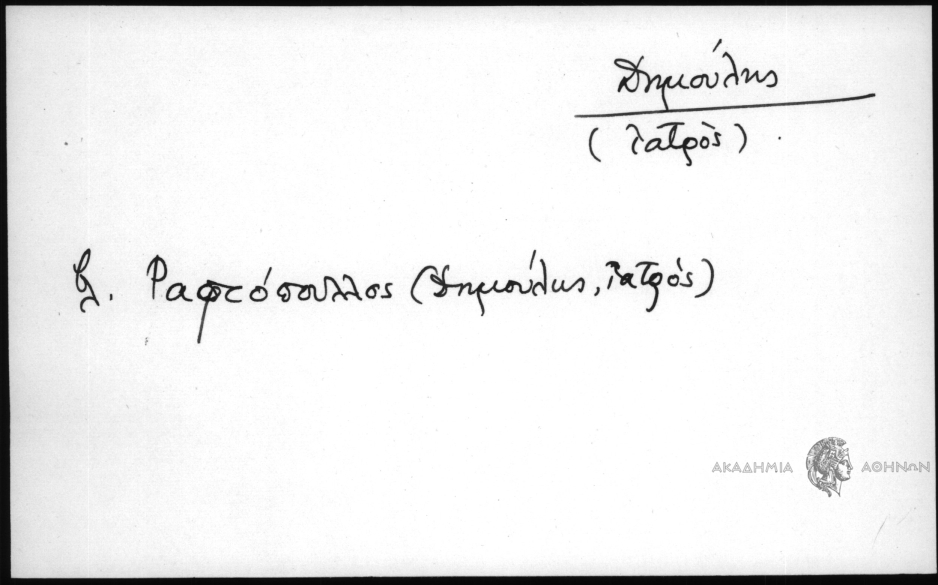 Δημούλης
(ἰατρὸς)
βλ. Ραφτόπουλλος (Δημούλης, ἰατρός)
ΑΚΑΔΗΜΙΑ ΑΘΗΝΩΝ